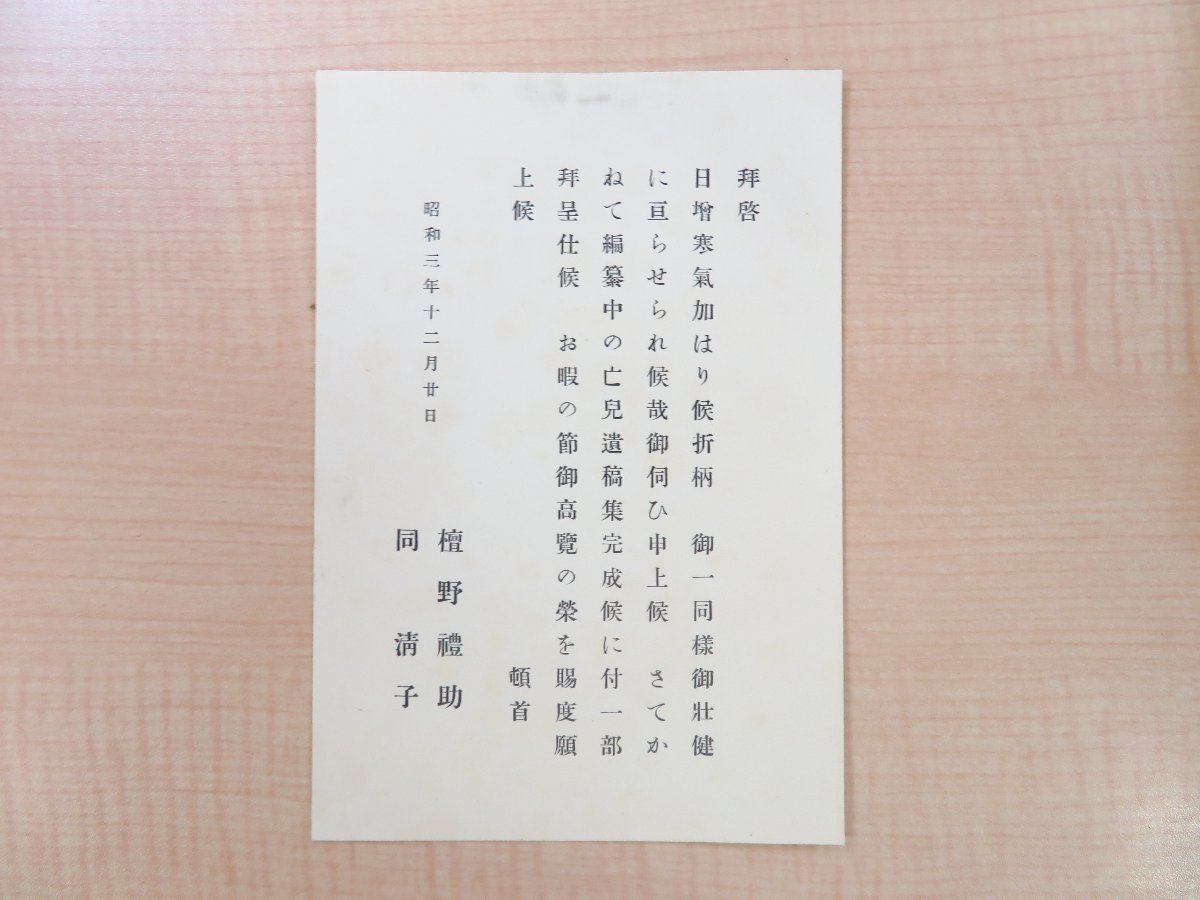 拜啓
日增寒氣加はり候折柄　御一同樣御壯健
に亘らせられ候哉御伺ひ申上候　さてか
ねて編纂中の亡兒遺稿集完成候に付一部
拜呈仕候　お暇の節御高覽の榮を賜度願
上候　頓首
昭和三年十二月廿日
檀野禮助
同　淸子